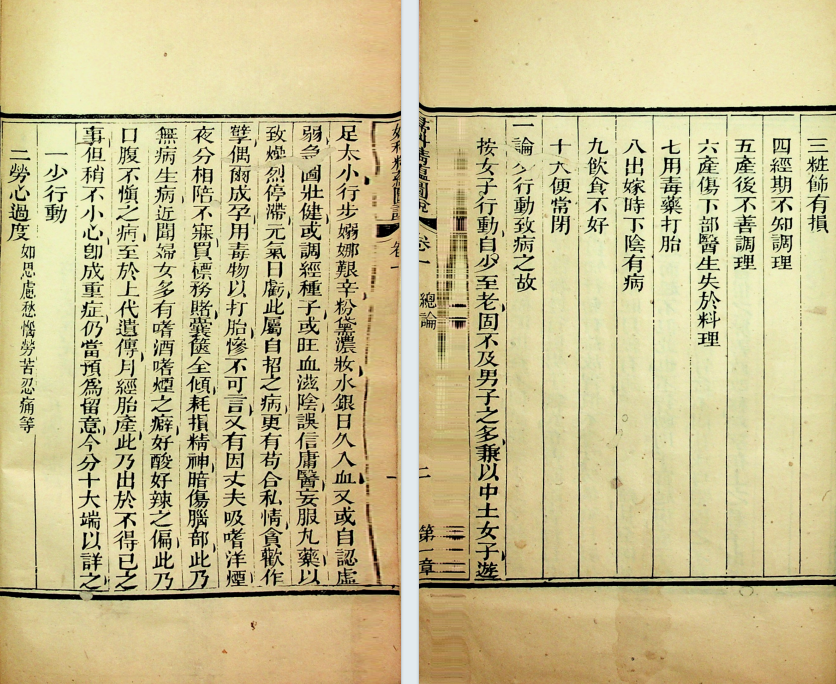 婦科精蘊圖說 卷一
足太小行步嫋娜艱辛粉黛濃妝水銀日久入血又或自認虛
弱急圖壯健或調經種子或旺血滋陰誤信庸醫妄服丸藥以
致燥烈停滯元氣日虧此屬自招之病更有苟合私情貪歡作
孽偶爾成孕用毒物以打胎慘不可言又有因丈夫吸嗜洋煙
夜分相陪不寐買標務賭囊篋全傾耗損精神暗傷腦部此乃
無病生病近聞婦女多有嗜酒嗜煙之癖好酸好辣之偏此乃
口腹不愼之病至於上代遺傳月經胎產此乃出於不得已之
事但稍不小心卽成重症仍當預爲留意今分十大端以詳之
一少行動
二勞心過度 如思慮愁惱勞苦忍痛等
三粧飾有損
四經期不知調理
五產後不善調理
六產傷下部醫生失於料理
七用毒藥打胎
八出嫁時下陰有病
九飲食不好
十大便常閉
一論少行動致病之故
按女子行動自少至老固不及男子之多兼以中土女子遊
婦科精蘊圖說 卷一 總論 二 第一章